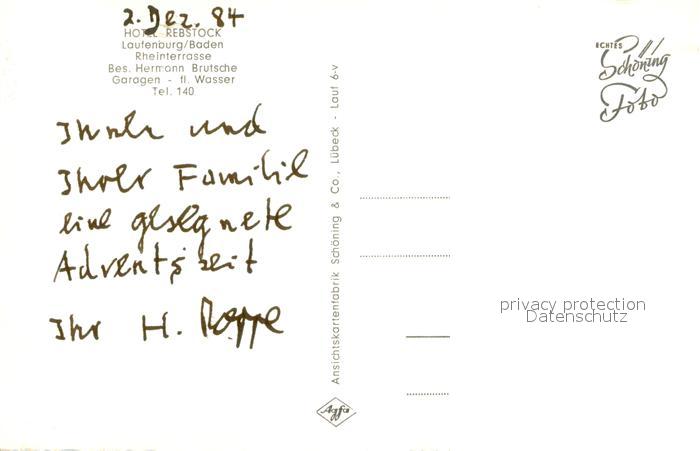 2. Dez. 84
HOTEL REBSTOCK
Laufenburg/Baden
Rheinterrasse
Bes. Hermann Brutsche
Garagen - fl. Wasser
Tel. 140
Ihnen und
Ihrer Familie
eine gesegnete
Adventszeit
Ihr H.
Ansichtskartenfabrik Schöning & Co., Lübeck - Lauf 6-v
Agfa
ECHTES
Schöning
Foto
privacy protection
Datenschutz